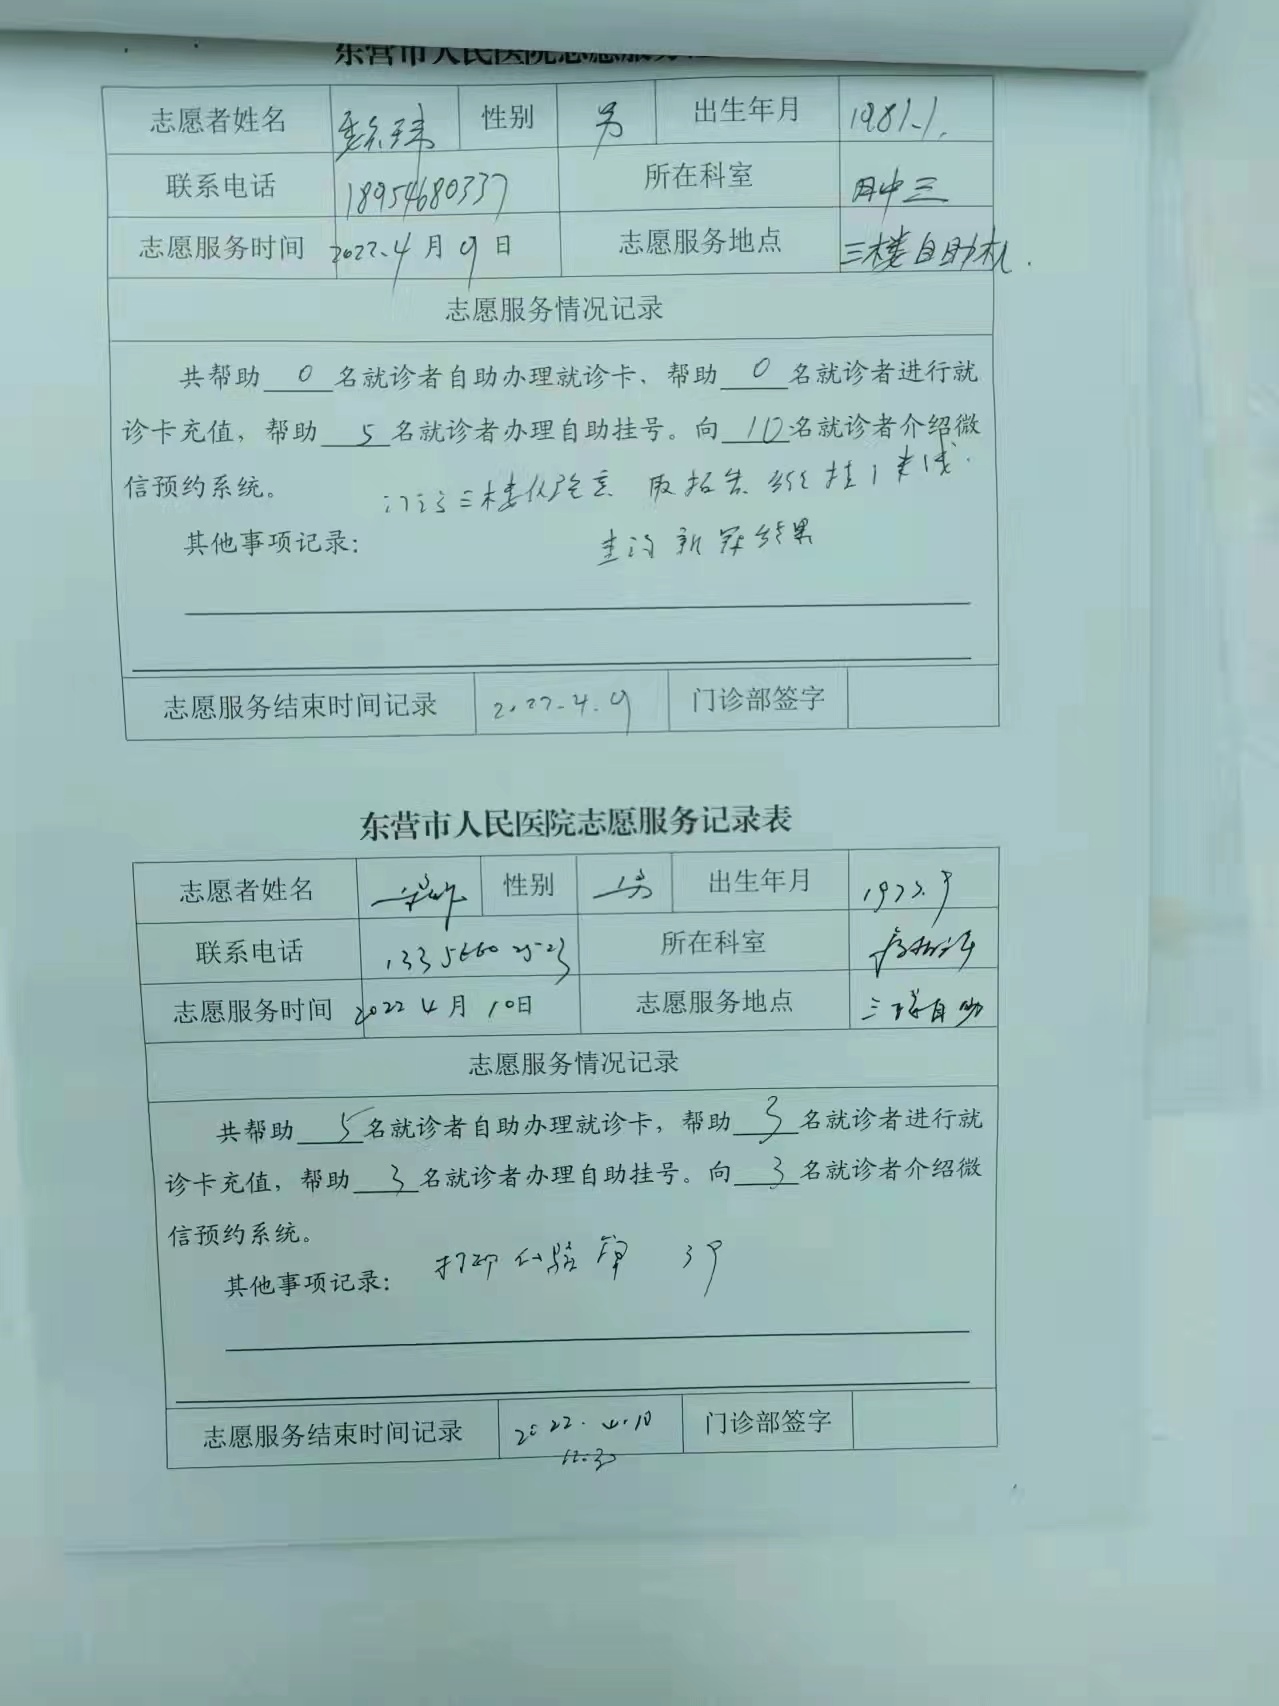 东营市人民医院志愿服务
志愿者姓名 性别 男 出生年月 1981.1.
联系电话 18954680337 所在科室
志愿服务时间 2022.4月9日 志愿服务地点 三楼自助机.
志愿服务情况记录
共帮助 0 名就诊者自助办理就诊卡、帮助 0 名就诊者进行就
诊卡充值，帮助 5 名就诊者办理自助挂号。向 10 名就诊者介绍微
信预约系统。 取报告
其他事项记录： 查询新冠结果
志愿服务结束时间记录 2022.4.9 门诊部签字
东营市人民医院志愿服务记录表
志愿者姓名 性别 男 出生年月
联系电话 所在科室
志愿服务时间 2022 4月10日 志愿服务地点 三楼自助
志愿服务情况记录
共帮助 5 名就诊者自助办理就诊卡，帮助 3 名就诊者进行就
诊卡充值，帮助 3 名就诊者办理自助挂号。向 3 名就诊者介绍微
信预约系统。
其他事项记录： 打印化验单
志愿服务结束时间记录 2022.4.10 门诊部签字